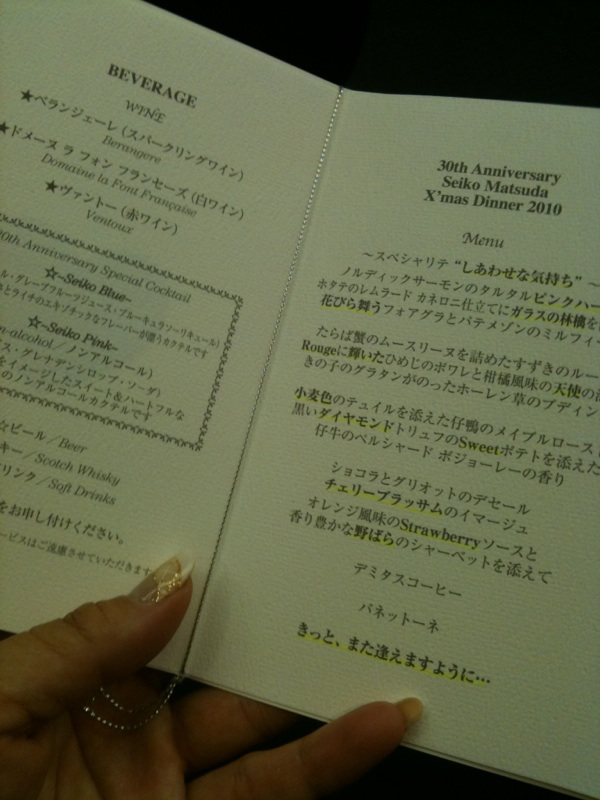 BEVERAGE
WINE
★ベランジェーレ（スパークリングワイン）
Berangere
★ドメーヌ ラ フォン フランセーズ（白ワイン）
Domaine la Font Française
★ヴァントー（赤ワイン）
Ventoux
0th Anniversary Special Cocktail
☆~Seiko Blue~
ル・グレープフルーツジュース・ブルーキュラソーリキュール）
とライチのエキゾチックなフレーバーが漂うカクテルです
☆~Seiko Pink~
n-alcohol／ノンアルコール）
ス・グレナデンシロップ・ソーダ）
をイメージしたスイート＆ハートフルな
のノンアルコールカクテルです
☆ビール／Beer
キー／Scotch Whisky
リンク／Soft Drinks
をお申し付けください。
ービスはご遠慮させていただきます
30th Anniversary
Seiko Matsuda
X'mas Dinner 2010
Menu
～スペシャリテ “しあわせな気持ち” ～
ノルディックサーモンのタルタルピンクハー
ホタテのレムラード カネロニ仕立てにガラスの林檎を
花びら舞うフォアグラとパテメゾンのミルフィー
たらば蟹のムースリーヌを詰めたすずきのルー
Rougeに輝いたひめじのポワレと柑橘風味の天使の
きの子のグラタンがのったホーレン草のプディン
小麦色のテュイルを添えた仔鴨のメイプルロースト
黒いダイヤモンドトリュフのSweetポテトを添えた
仔牛のペルシャード ボジョーレーの香り
ショコラとグリオットのデセール
チェリーブラッサムのイマージュ
オレンジ風味のStrawberryソースと
香り豊かな野ばらのシャーベットを添えて
デミタスコーヒー
パネットーネ
きっと、また逢えますように…